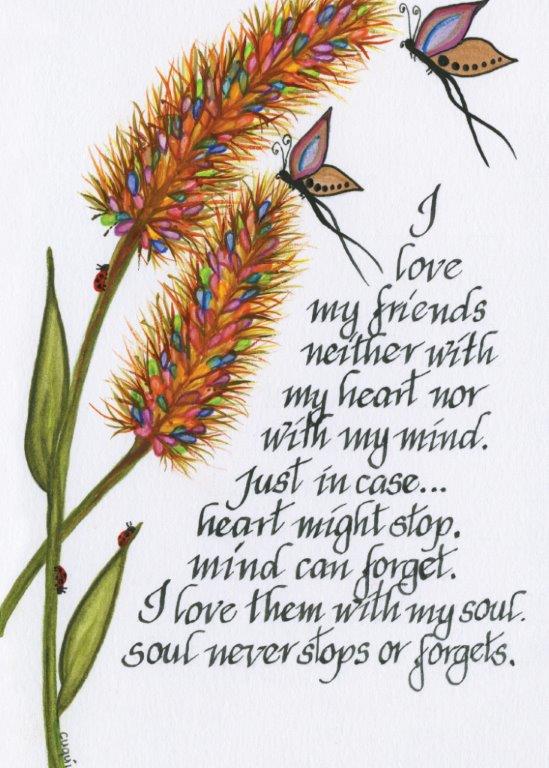 I
love
my friends
neither with
my heart nor
with my mind.
Just in case...
heart might stop.
mind can forget.
I love them with my soul.
soul never stops or forgets.